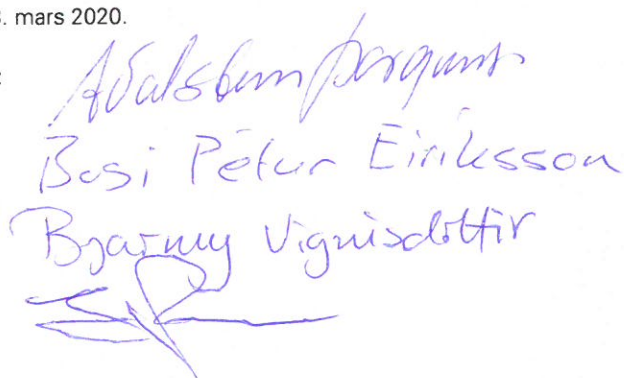 . mars 2020.
:
Aðalsteinn Þorgeirss
Bosi Pétur Eiríksson
Bjarney Vignisdóttir